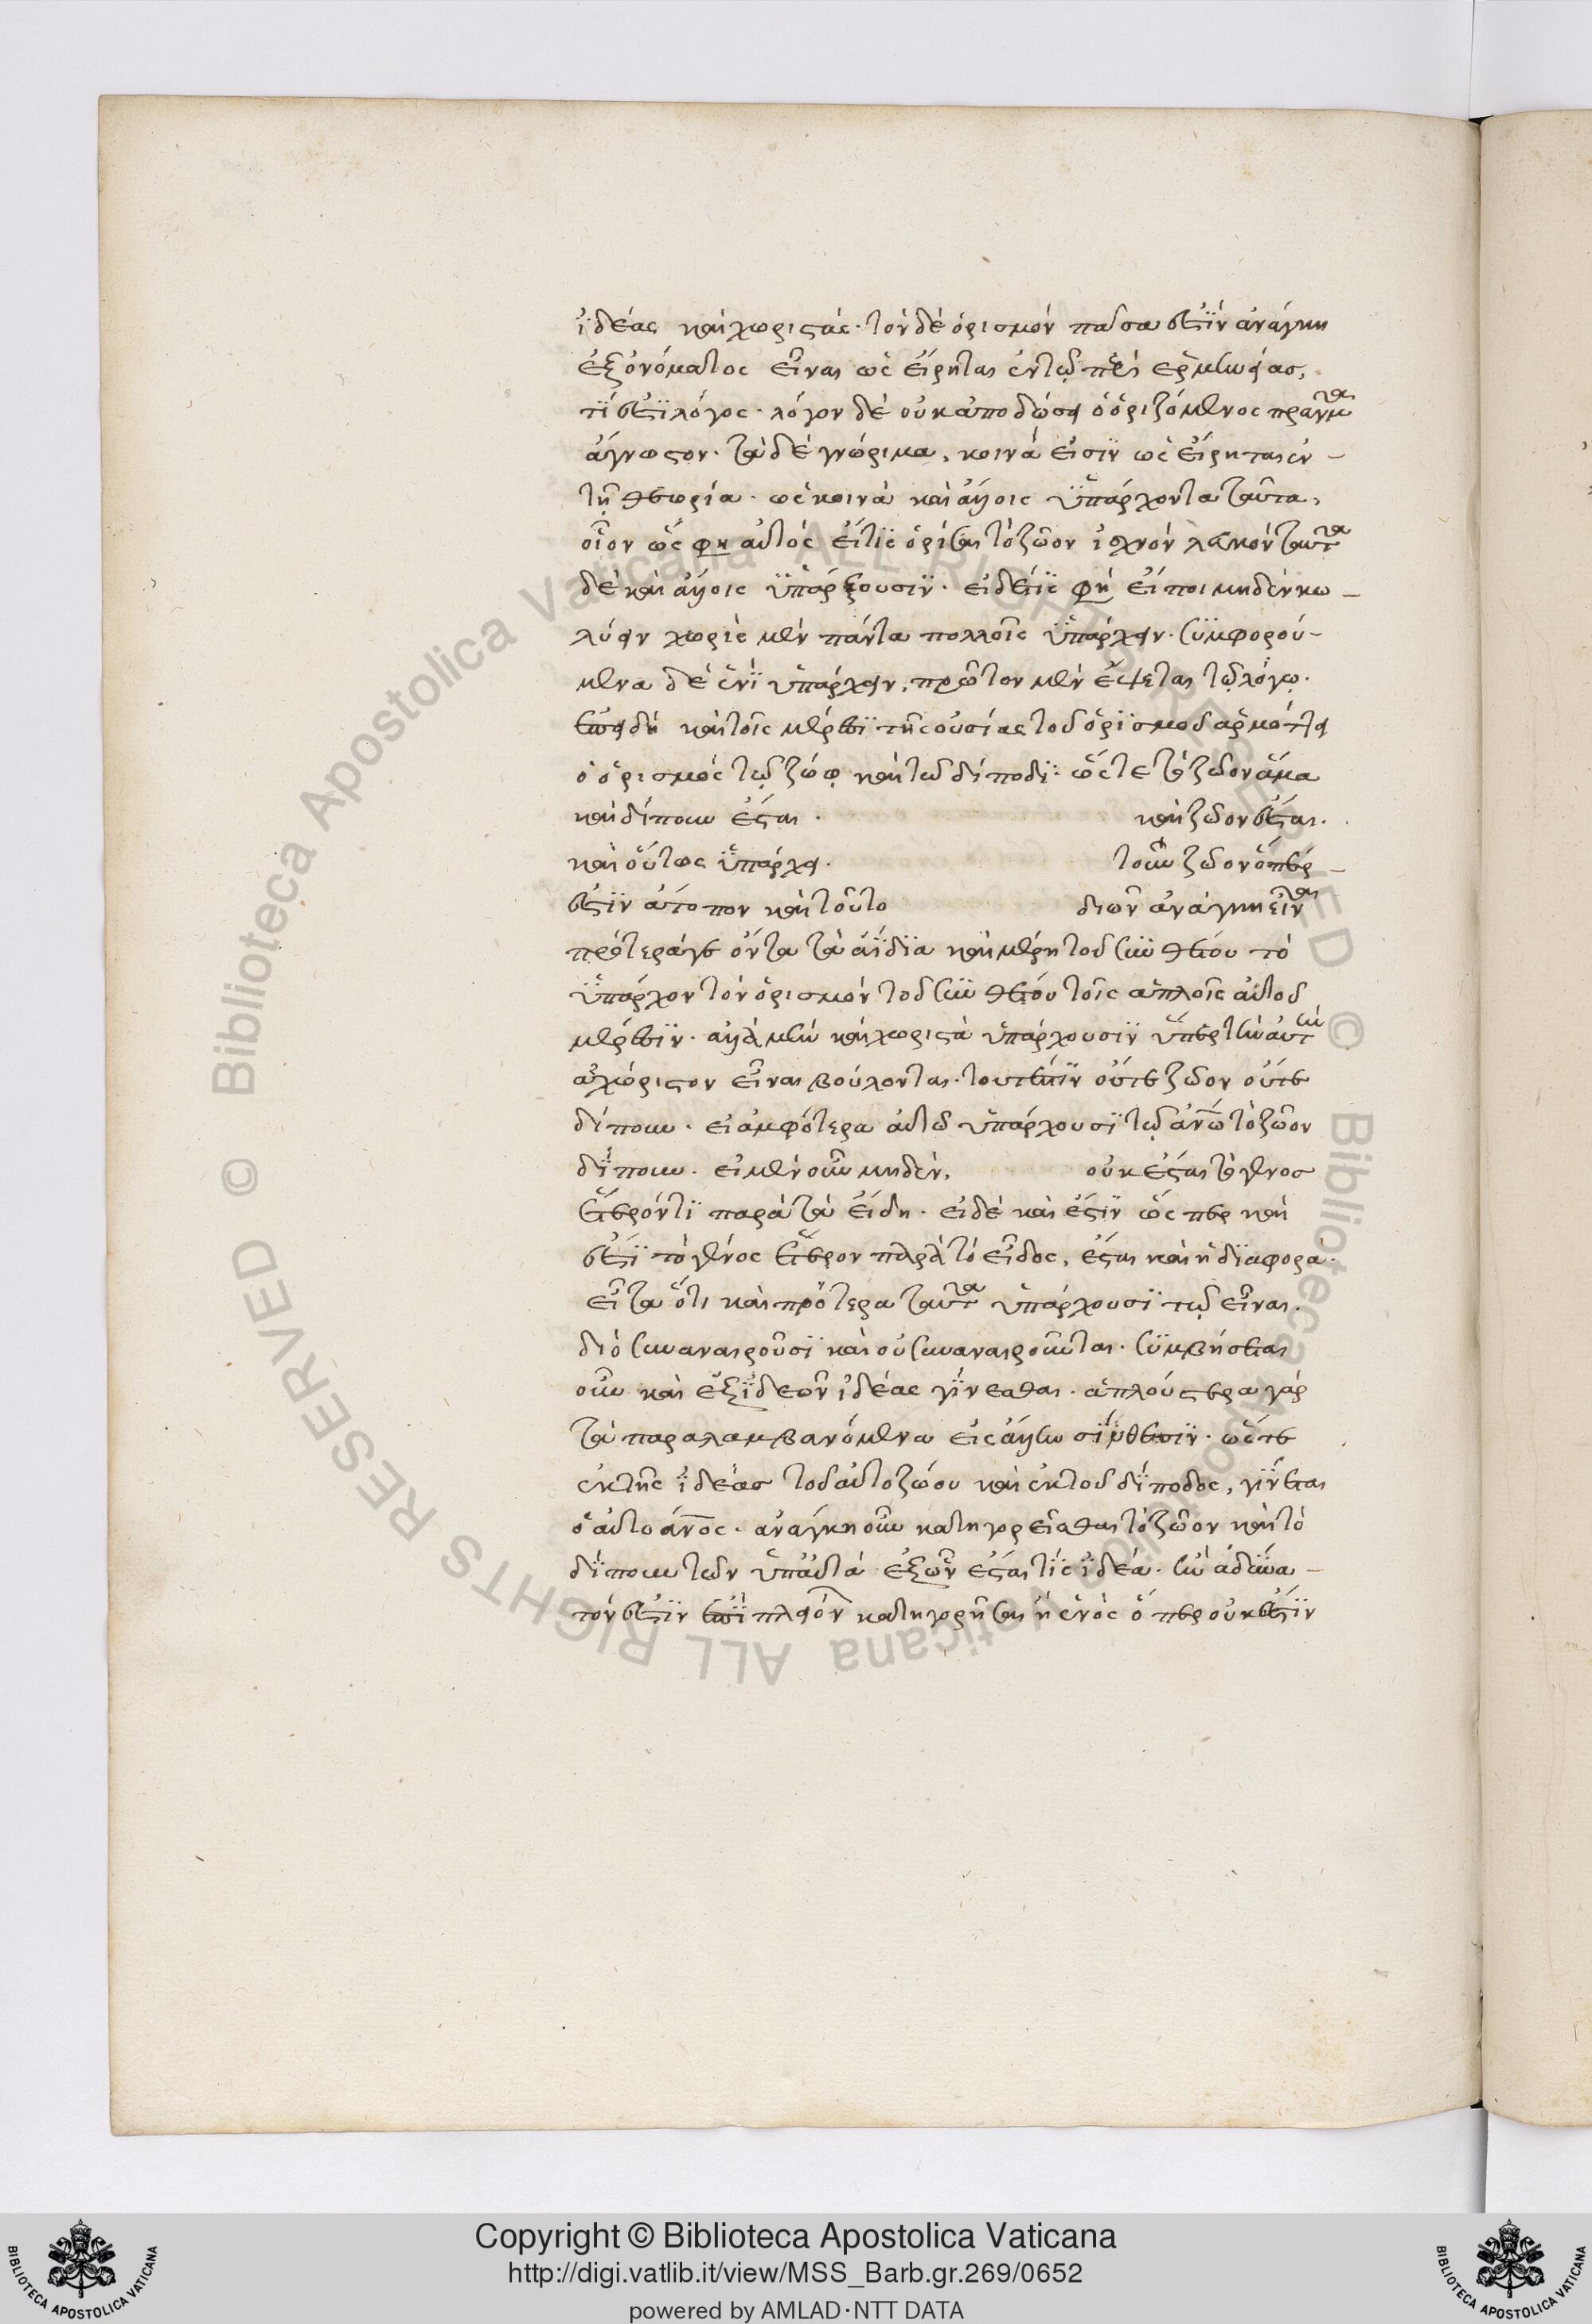 ἰδέας καὶ χωριστάς. τὸν δὲ ὁρισμὸν πᾶσα ἐστὶν ἀνάγκη
ἐξ ὀνόματος εἶναι ὡς εἴρηται ἐν τῷ περὶ ἑρμηνείας,
τί ἐστι λόγος. λόγον δὲ οὐκ ἀποδώσει ὁ ὁριζόμενος πράγμα
ἄγνωστον. τὰ δὲ γνώριμα, κοινά εἰσιν ὡς εἴρηται ἐν
τῇ θεωρία. ὡς κοινὰ καὶ ἄλλοις ὑπάρχοντα ταῦτα,
οἷον ὥς φη αὐτὸς εἴ τις ὁρίσαι τὸ ζῶον ἰσχνὸν λευκὸν ταῦτα
δὲ καὶ ἄλλοις ὑπάρξουσιν. εἰ δέ τις φὴ εἴποι μηδὲν κω
λύειν χωρὶς μὲν πάντα πολλοῖς ὑπάρχειν. συμφορού
μενα δὲ ἑνὶ ὑπάρχειν, πρῶτον μὲν ἕψεται τῷ λόγῳ.
ἐπειδὴ καὶ τοῖς μέρεσι τῆς οὐσίας τοῦ ὁρισμοῦ ἁρμόττει
ὁ ὁρισμὸς τῷ ζώῳ καὶ τῷ δίποδι. ὥστε τὸ ζῶον ἅμα
καὶ δίπουν ἔσται. καὶ ζῶον ἔσται.
καὶ οὕτως ὑπάρχει. τὸ οὖν ζῶον ὅπερ
ἐστὶν ἄτοπον καὶ τοῦτο διῶν ἀνάγκη εἶναι
πρότερά γε ὄντα τὰ ἀΐδια καὶ μέρη τοῦ συνθέτου τὸ
ὑπάρχον τὸν ὁρισμὸν τοῦ συνθέτου τοῖς ἁπλοῖς αὐτοῦ
μέρεσιν. ἀλλὰ μὴν καὶ χωριστὰ ὑπάρχουσιν ὑπὲρ τὴν αὐτὴν
ἀχώριστον εἶναι βούλονται. τουτέστιν οὔτε ζῶον οὔτε
δίπουν. εἰ ἀμφότερα αὐτῷ ὑπάρχουσι τῷ ἀνω τὸ ζῶον
δίπουν. εἰ μὲν οὖν μηδέν, οὐκ ἔσται τὸ γένος
ἕτερόν τι παρὰ τὰ εἴδη. εἰ δὲ καὶ ἔστιν ὥσπερ καὶ
ἐστὶ τὸ γένος ἕτερον παρὰ τὸ εἶδος, ἔσται καὶ ἡ διαφορά.
εἶτα ὅτι καὶ πρότερα ταῦτα ὑπάρχουσι τῷ εἶναι.
διὸ συναναιροῦσι καὶ οὐ συναναιροῦνται. συμβήσεται
οὖν καὶ ἐξ ἰδεῶν ἰδέας γίνεσθαι. ἁπλούστερα γὰρ
τὰ παραλαμβανόμενα εἰς ἄλλην σύνθεσιν. ὥστε
ἐκ τῆς ἰδέας τοῦ αὐτοζώου καὶ ἐκ τοῦ δίποδος, γίνεται
ὁ αὐτοάνος. ἀνάγκη οὖν κατηγορεῖσθαι τὸ ζῶον καὶ τὸ
δίπουν τῶν ὑπ' αὐτὰ ἐξ ὧν ἔσται τὶς ἰδέα. ἣν ἀδύνα
τόν ἐστιν ἐπὶ πλειόνων κατηγορῆσαι ἢ ἑνὸς ὅπερ οὐκ ἔστιν
Copyright © Biblioteca Apostolica Vaticana
http://digi.vatlib.it/view/MSS_Barb.gr.269/0652
powered by AMLAD·NTT DATA